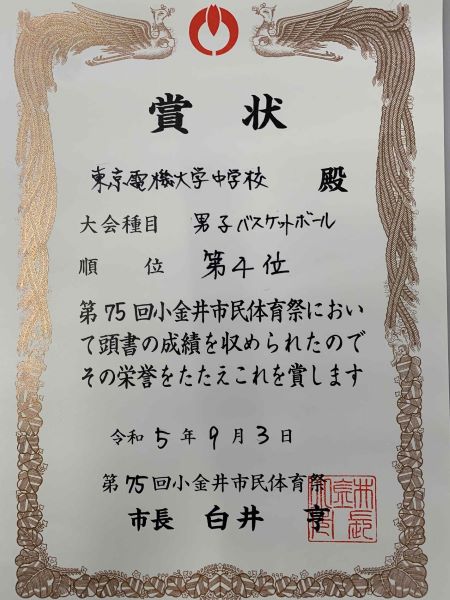 賞状
東京電機大学中学校 殿
大会種目 男子バスケットボール
順位 第4位
第75回小金井市民体育祭におい
て頭書の成績を収められたので
その栄誉をたたえこれを賞します
令和5年9月3日
第75回小金井市民体育祭
市長 白井 亨